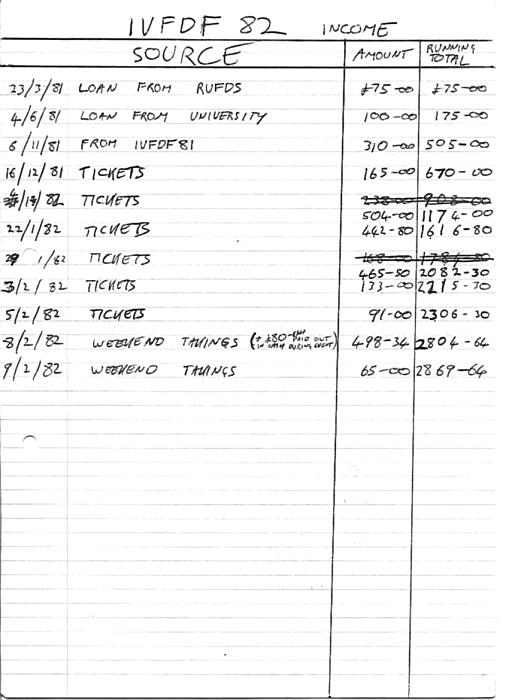 IVFDF 82 INCOME
SOURCE AMOUNT RUNNING TOTAL
23/3/81 LOAN FROM RUFDS £75-00 £75-00
4/6/81 LOAN FROM UNIVERSITY 100-00 175-00
6/11/81 FROM IVFDF81 310-00 505-00
16/12/81 TICKETS 165-00 670-00
/82 TICKETS 238-00 908-00
504-00 1174-00
22/1/82 TICKETS 442-80 1616-80
1/82 TICKETS 168-00
465-50 2082-30
3/2/82 TICKETS 133-00 2215-30
5/2/82 TICKETS 91-00 2306-30
8/2/82 WEEKEND TAKINGS (+ £80 PAID OUT IN CASH DURING EVENT) 498-34 2804-64
9/2/82 WEEKEND TAKINGS 65-00 2869-64